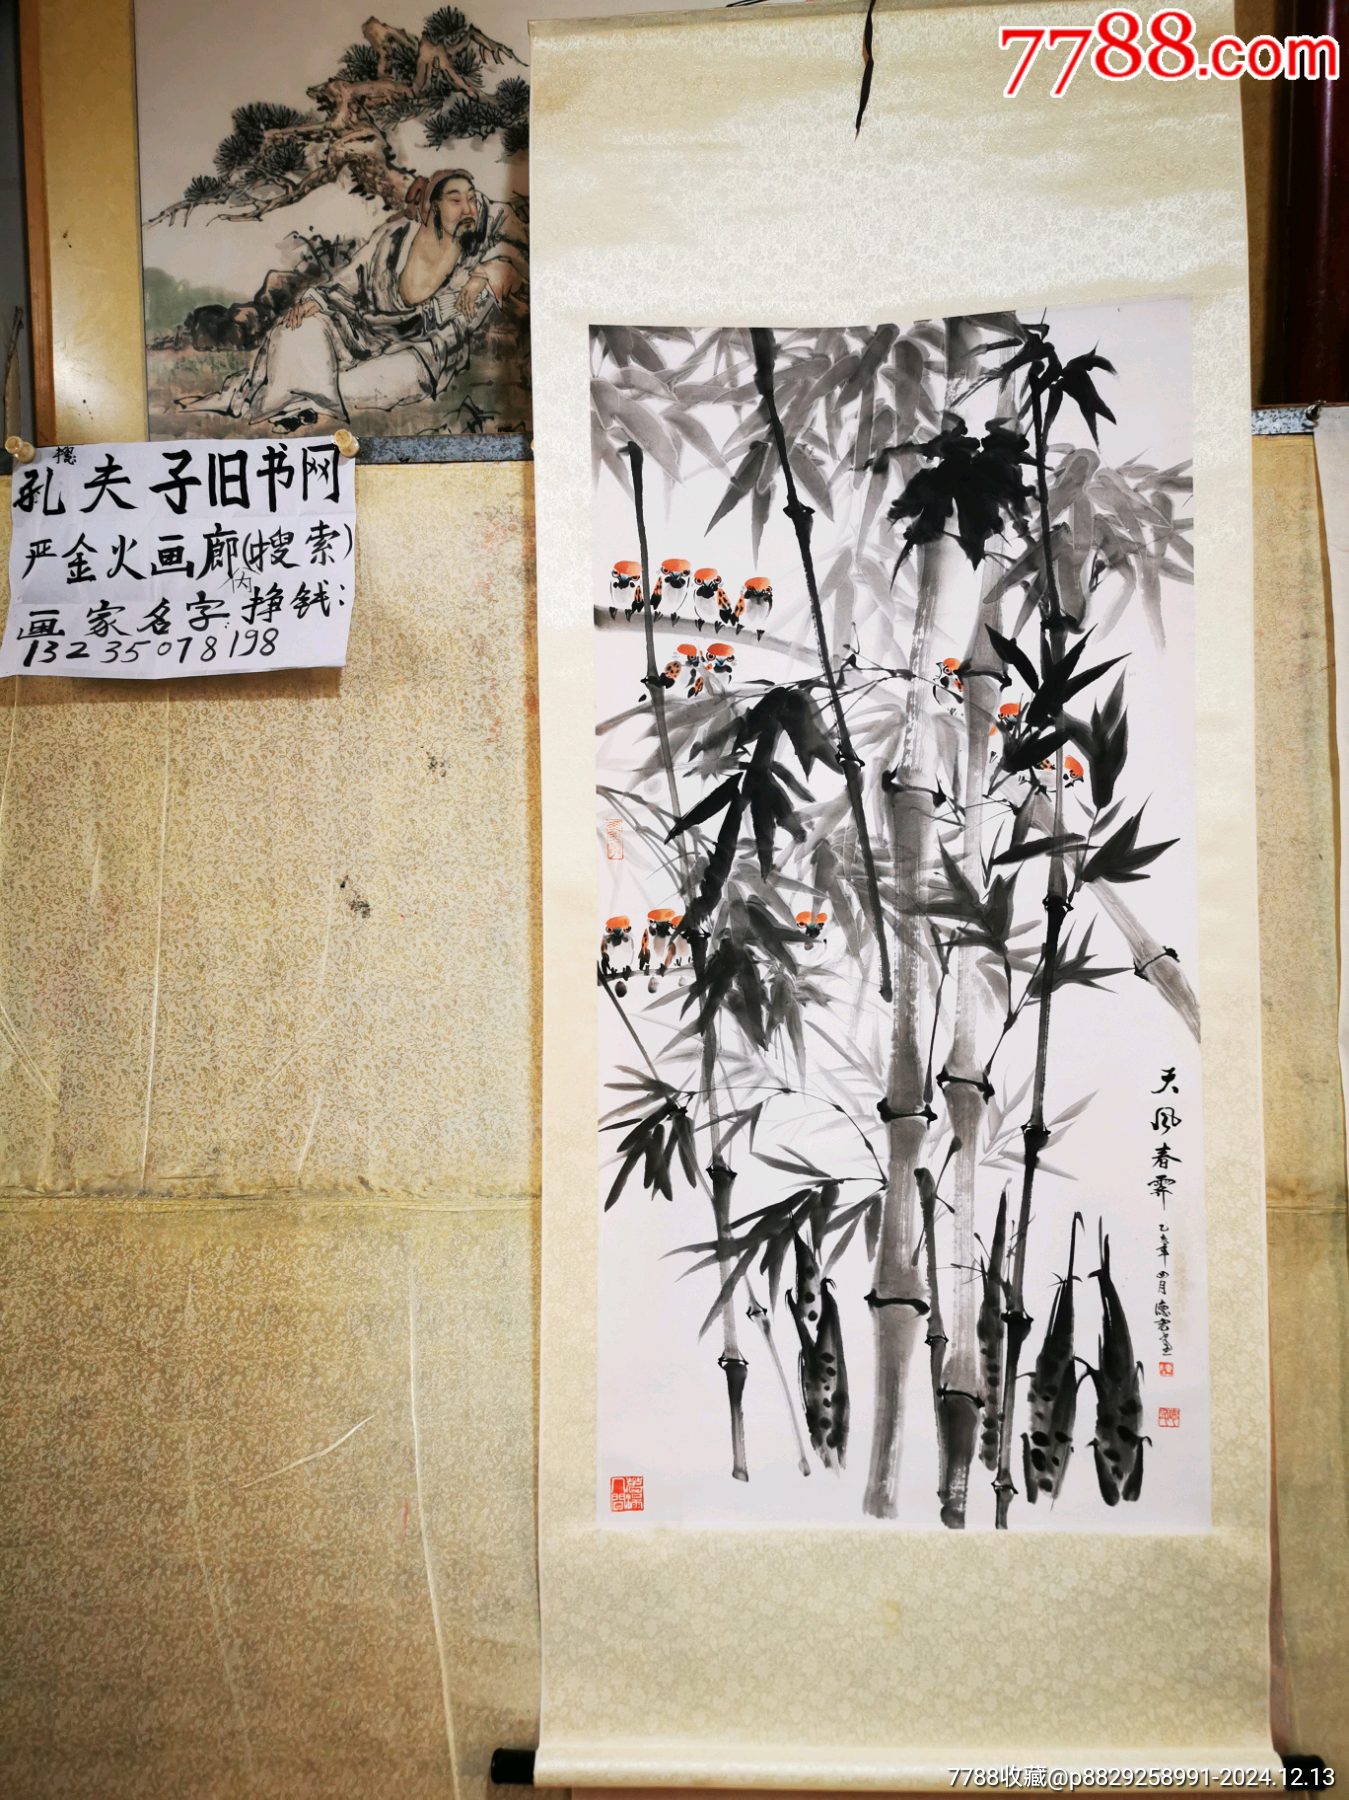 7788.com
搜
孔夫子旧书网
严金火画廊(搜索)
内
画家名字:挣钱:
13235078198
天风春霁
四月
7788收藏@p8829258991-2024.12.13